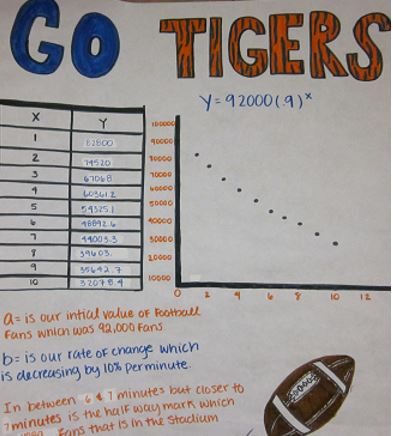 GO TIGERS
Y=92000(.9)ˣ
X Y
1 82800
2 74520
3 67068
4 60361.2
5 54325.1
6 48892.6
7 44003.3
8 39603.
9 35642.7
10 32078.4
100000
90000
80000
70000
60000
50000
40000
30000
20000
10000
0 2 4 6 8 10 12
a= is our intial value of Football
Fans which was 92,000 fans.
b= is our rate of change which
is decreasing by 10% per minute.
In between 6 & 7 minutes but closer to
7 minutes is the half way mark which
Fans that is in the Stadium